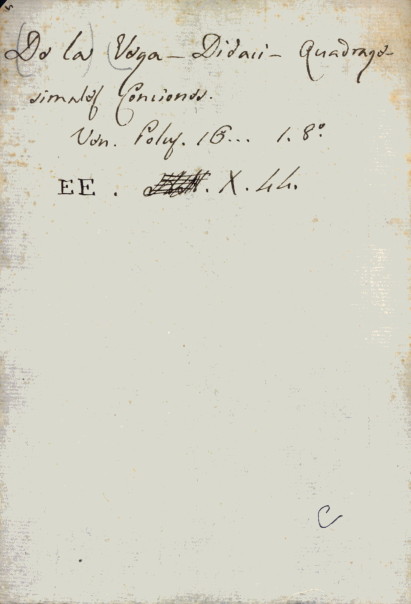 (De la) Vega – Didaci – Quadrage-
simales Conciones.
Ven. Polus. 16... 1. 8º.
EE. X. 44.
C